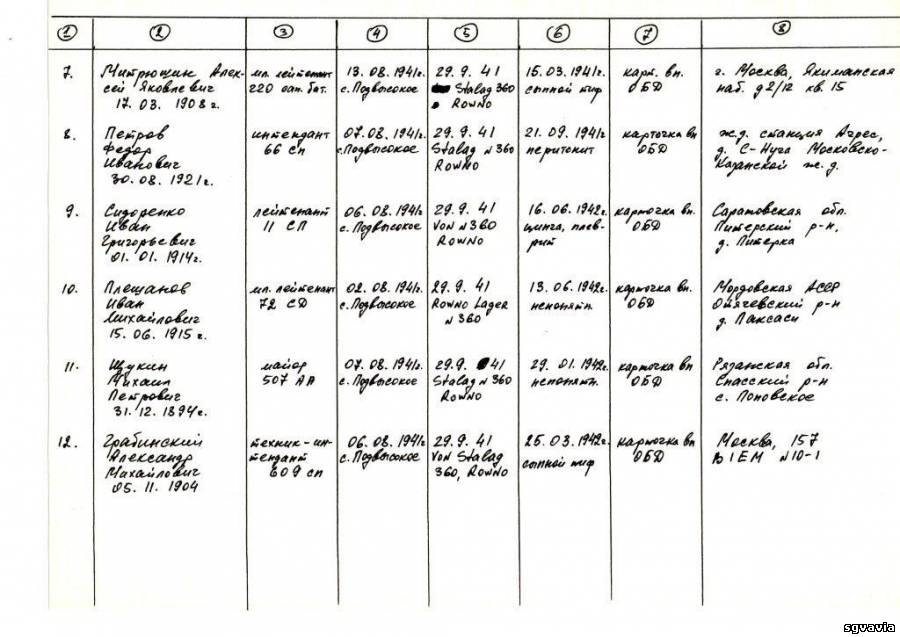 1
2
3
4
5
6
7
8
7.
Митрющин Алек-
сей Яковлевич
17. 03. 1908 г.
мл. лейтенант
220 сап. бат.
13. 08. 1941г.
с. Подвысокое
29. 9. 41
Stalag 360
ROWNO
15. 03. 1941г.
сыпной тиф
карт. вп.
ОБД
г. Москва, Якиманская
наб. д 2/12 кв. 15
8.
Петров
Федор
Иванович
30. 08. 1921г.
интендант
66 сп
07. 08. 1941г
с.Подвысокое
29. 9. 41
Stalag N 360
ROWNO
21. 09. 1941г
перитонит
карточка вп
ОБД
ж.д. станция Адрес,
д. С-Нуча Московско-
Казанской ж. д.
9.
Сидоренко
Иван
Григорьевич
01. 01. 1914г.
лейтенант
11 СП
06. 08. 1941г
с. Подвысокое
29. 9. 41
VON N 360
ROWNO
16. 06. 1942г.
цинга, плев-
рит
карточка вп.
ОБД
Саратовская обл.
Питерский р-н,
д. Питерка
10.
Плешанов
Иван
Михайлович
15. 06. 1915 г.
мл. лейтенант
72 СД
02. 08. 1941г
с. Подвысокое
29. 9. 41
ROWNO Lager
N 360
13. 06. 1942г.
непонятн.
карточка вп.
ОБД
Мордовская АССР
р-н
д. Паксаси
11.
Щукин
Михаил
Петрович
31. 12. 1894г.
майор
507 АП
07. 08. 1941г.
с. Подвысокое
29. 9. 41
Stalag N 360
ROWNO
29. 01 1942г.
непонятн.
карточка вп
ОБД
Рязанская обл.
Спасский р-н
с. Поповское
12.
Грабинский
Александр
Михайлович
05. 11. 1904
техник-ин-
тендант
609 сп
06. 08. 1941г
с. Подвысокое
29. 9. 41
VON Stalag
360, ROWNO
25. 03. 1942г.
сыпной тиф
карточка вп
ОБД
Москва, 157
N 10-1
sgvavia